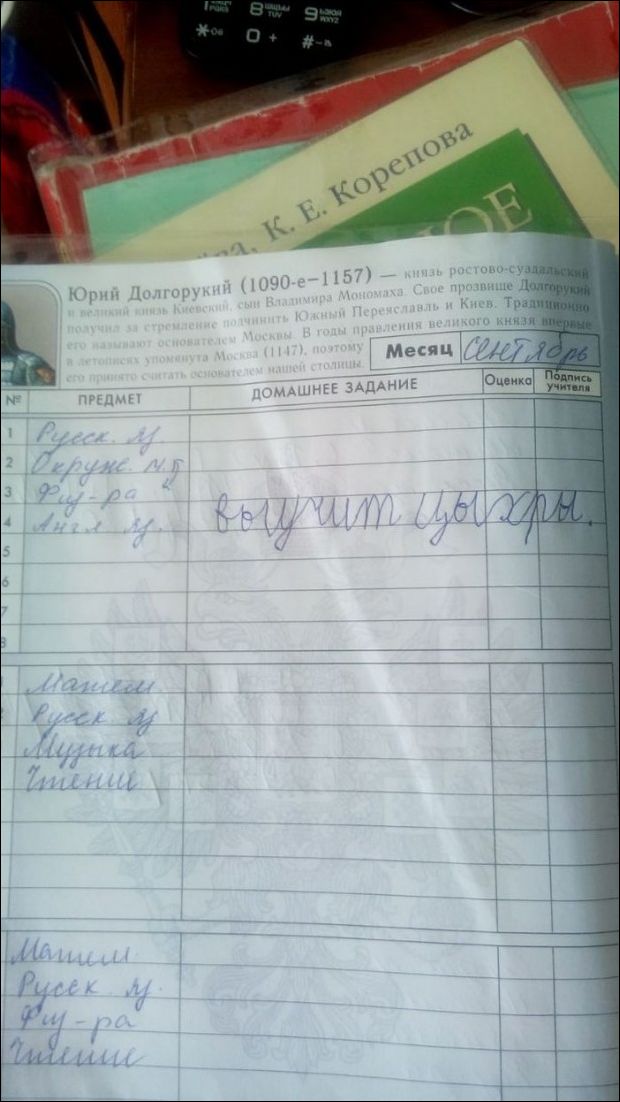 8 ШЩЫ
TUV
9 ЬЭЮЯ
WXYZ
*
0 +
#
К. Е. Корепова
НОЕ
Юрий Долгорукий (1090-е–1157) — князь ростово-суздальский
и великий князь Киевский, сын Владимира Мономаха. Свое прозвище Долгорукий
получил за стремление подчинить Южный Переяславль и Киев. Традиционно
его называют основателем Москвы. В годы правления великого князя впервые
в летописях упомянута Москва (1147), поэтому
его принято считать основателем нашей столицы.
Месяц Сентябрь
№ ПРЕДМЕТ ДОМАШНЕЕ ЗАДАНИЕ Оценка Подпись учителя
1 Русск. яз.
2 Окруж.
3 Физ-ра
4 Англ яз. выучит цыхры.
5
6
7
8
Матем
Русск яз
Музыка
Чтение
Матем.
Русск яз.
Физ-ра
Чтение